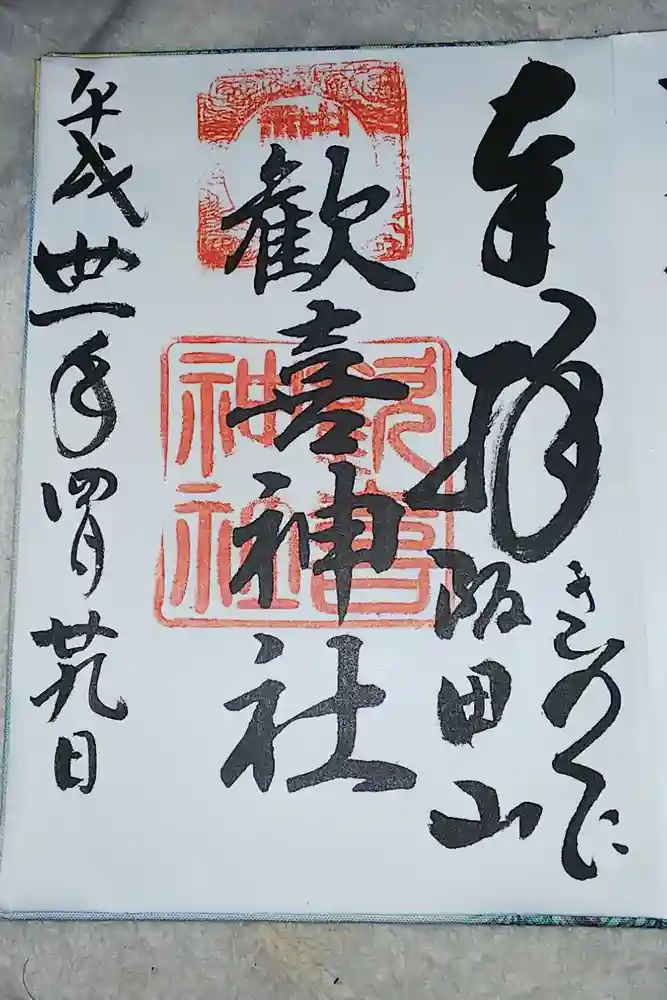 奉拝
きのくに
阪田山
歓喜神社
歓喜神社
平成卅一年四月廿九日